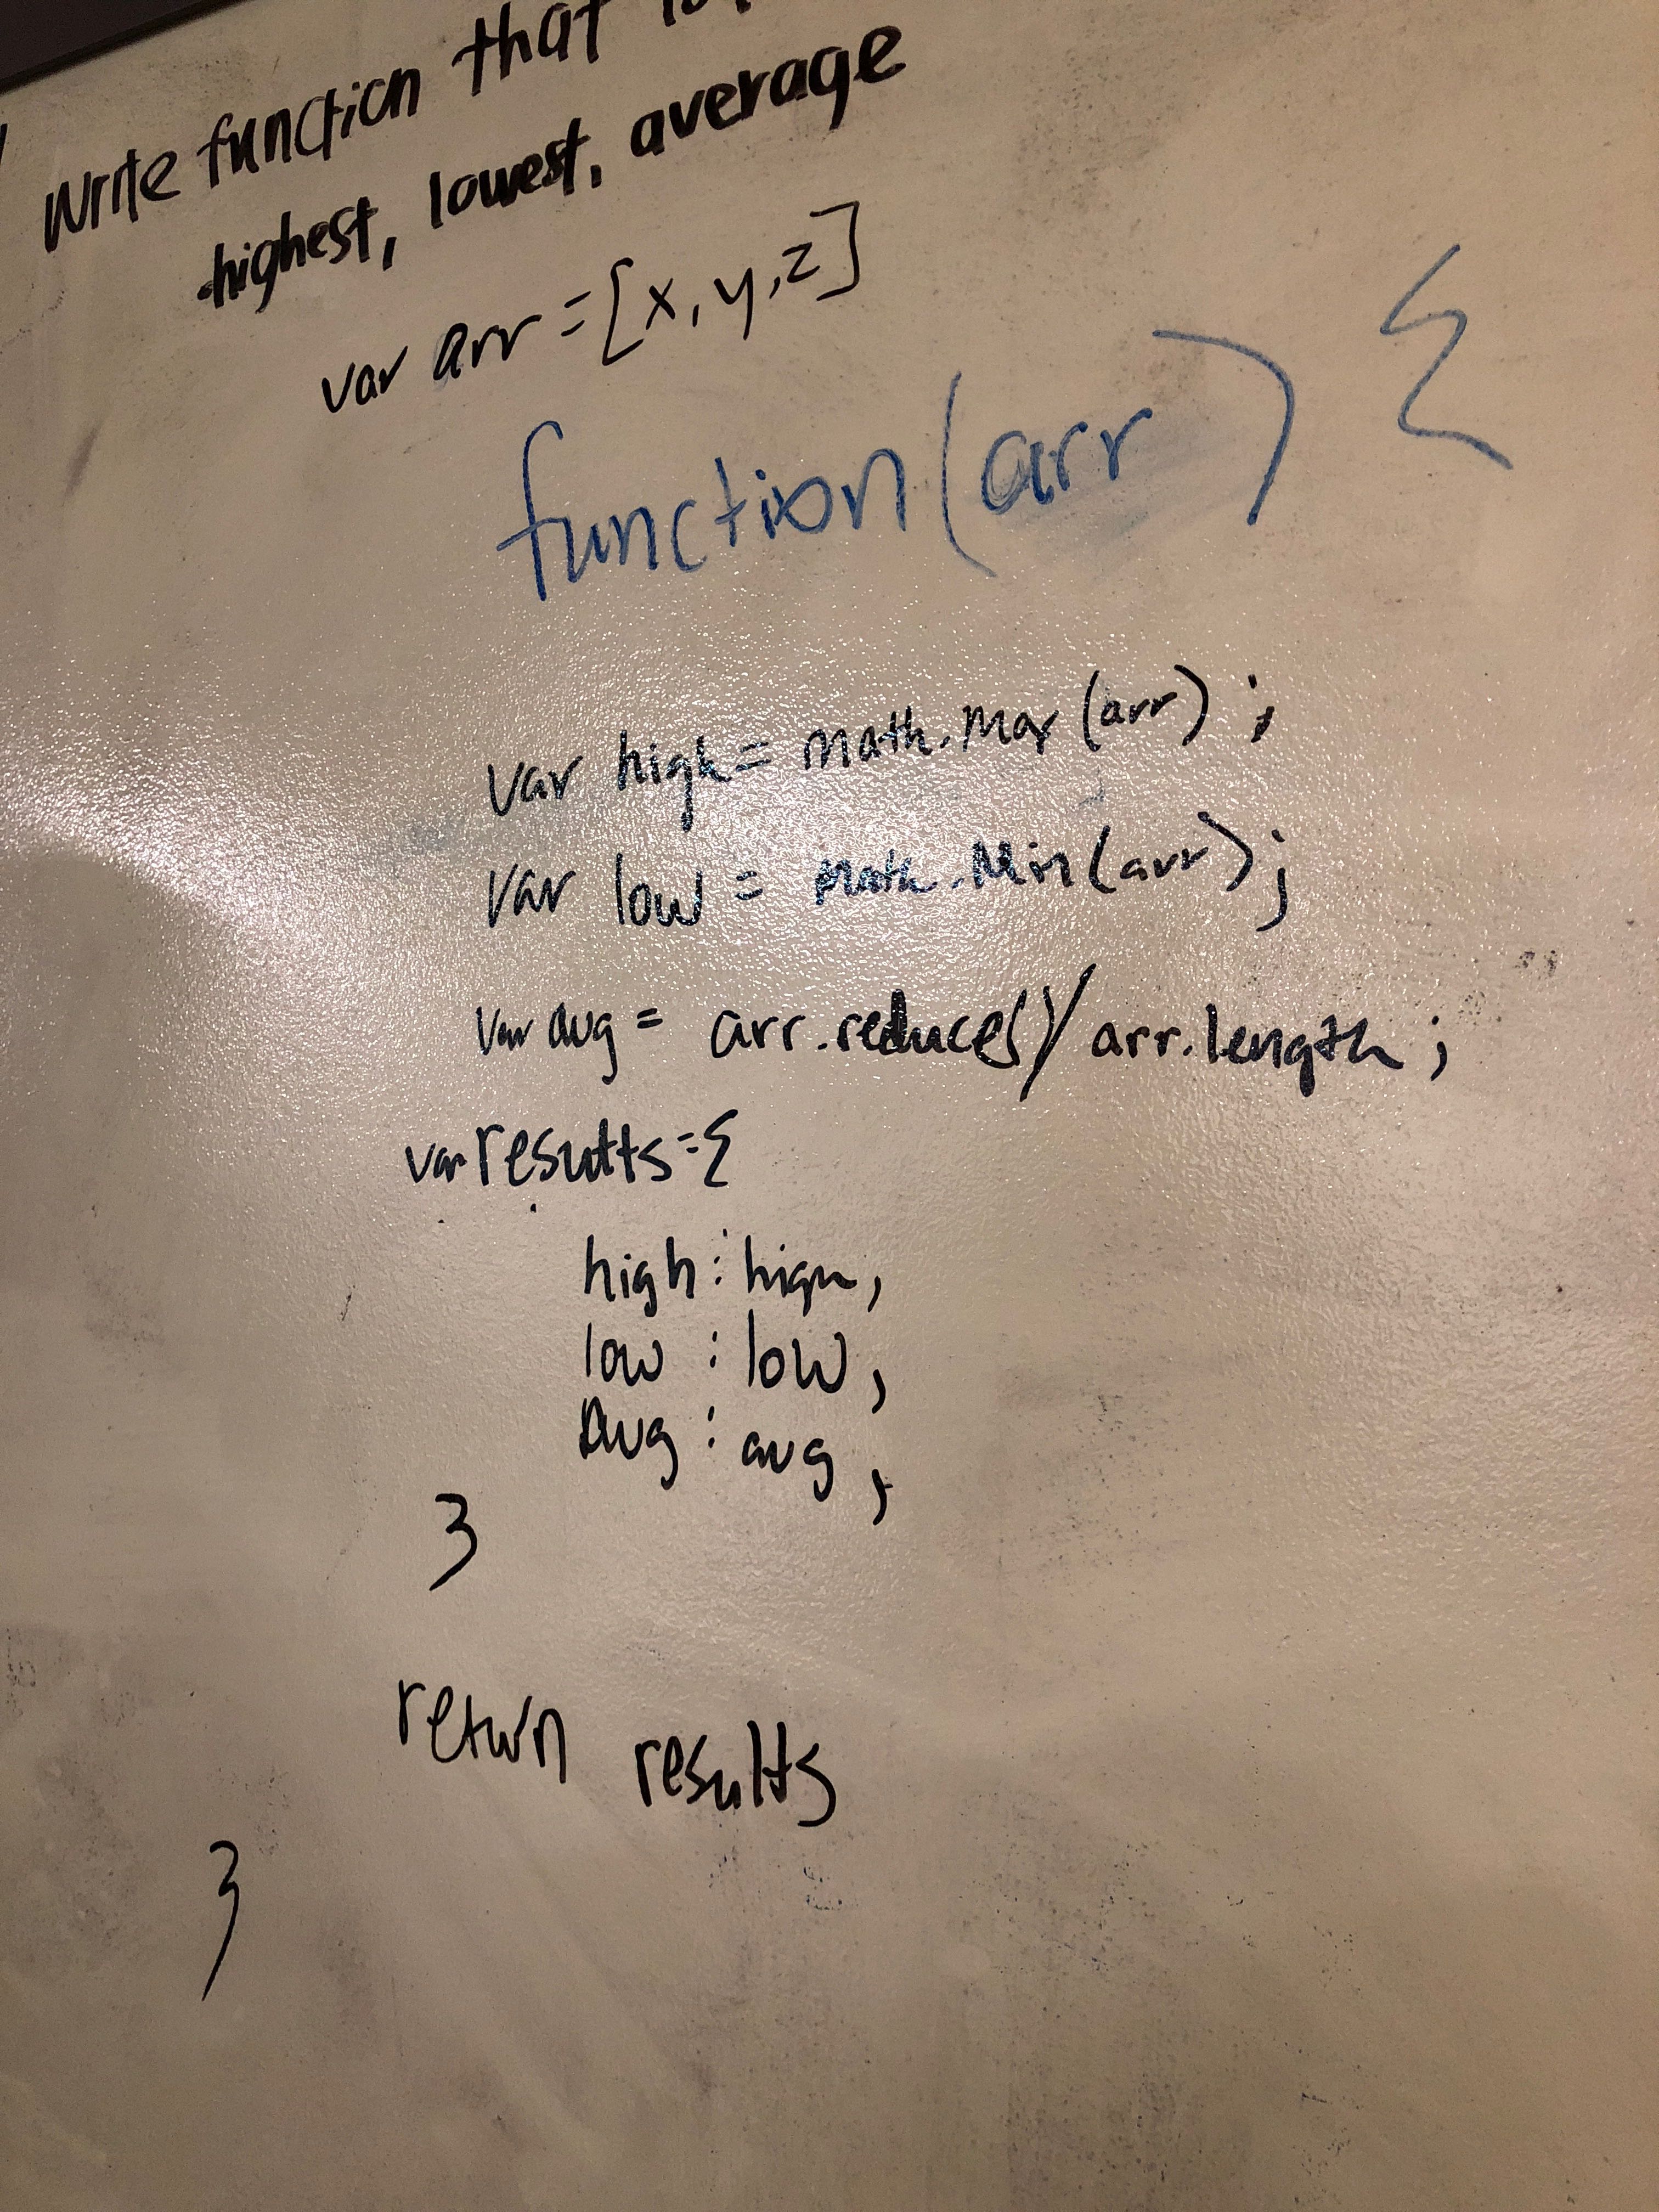 Write function that
highest, lowest, average
var arr = [x, y, z]
function(arr) {
var high = math.max(arr);
var low = math.Min(arr);
var avg = arr.reduce()/arr.length;
var results = {
high : high,
low : low,
Avg : avg,
}
return results
}